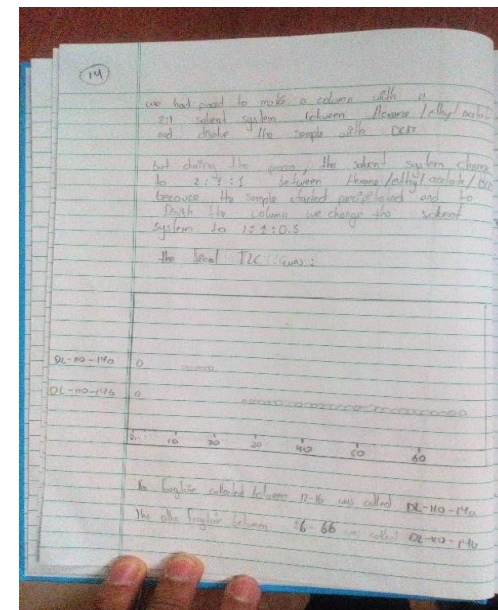 14
we had pood to make a column with a
2:1 solvent system between Hexane / ethyl acetate
and disolve the sample with DCM
but doing the the solvent system change
to 2:1:1 between Hexane / ethyl acetate /
because the sample started precipitated and to
finish the column we change the solvent
system to 1:1:0.5
the final TLC was:
DL-110-14a 0
DL-110-14b 0
10 20 30 40 60 60
collected between 12-16 was called DL-110-14a
The other between 26-66 was called DL-110-14b